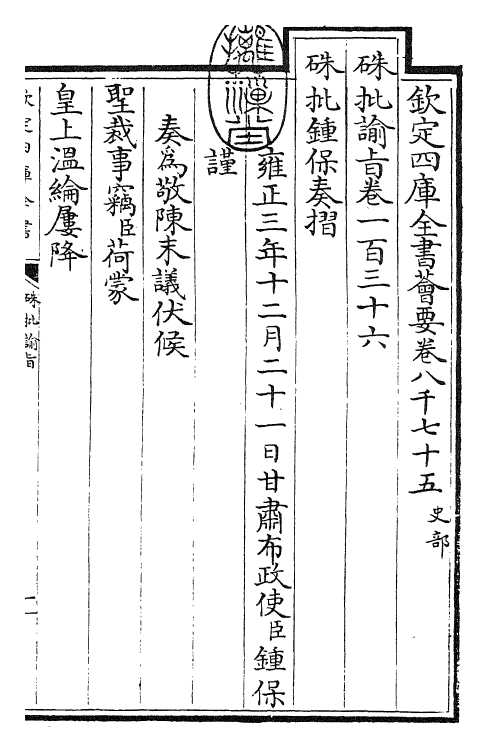 欽定四庫全書薈要卷八千七十五 史部
硃批諭旨卷一百三十六
硃批鍾保奏摺
雍正三年十二月二十一日甘肅布政使臣鍾保
謹
奏爲敬陳末議伏候
聖裁事竊臣荷蒙
皇上溫綸屢降
欽定四庫全書
硃批諭旨
一